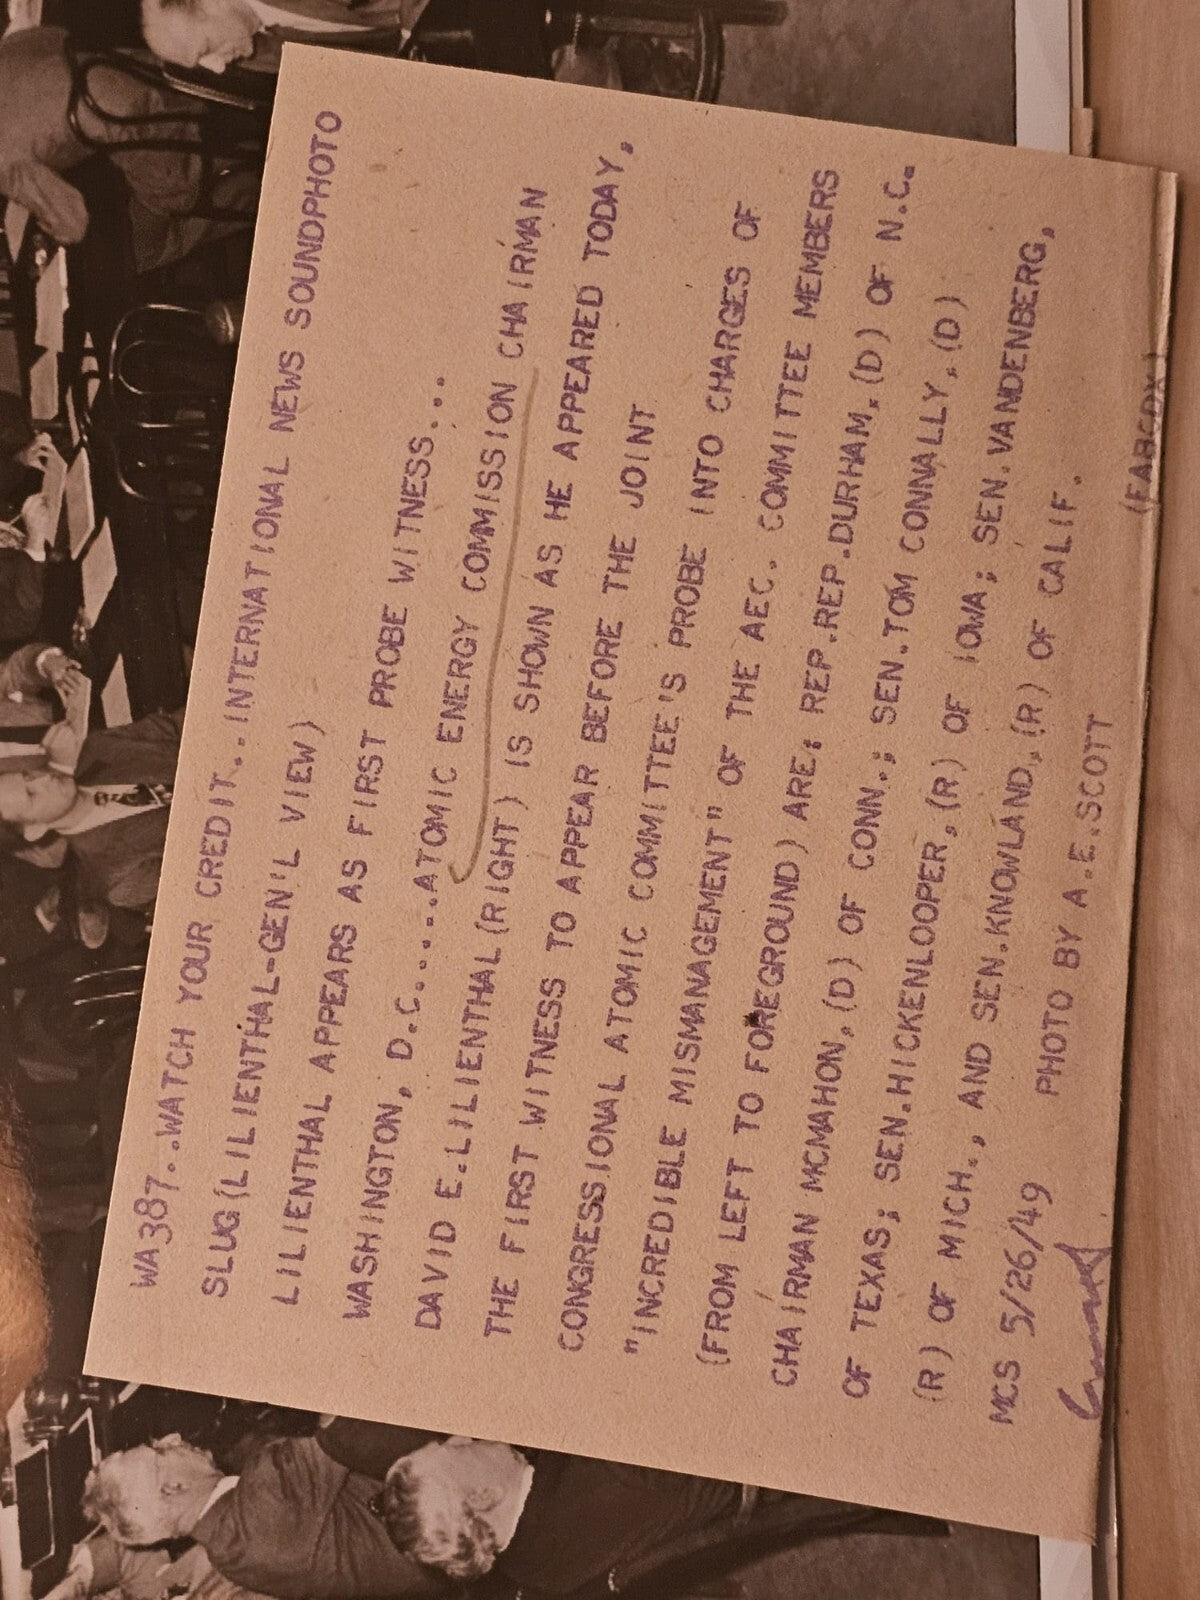 WA387..WATCH YOUR CREDIT..INTERNATIONAL NEWS SOUNDPHOTO
SLUG(LILIENTHAL-GEN'L VIEW)
LILIENTHAL APPEARS AS FIRST PROBE WITNESS...
WASHINGTON, D.C.....ATOMIC ENERGY COMMISSION CHAIRMAN
DAVID E.LILIENTHAL(RIGHT) IS SHOWN AS HE APPEARED TODAY,
THE FIRST WITNESS TO APPEAR BEFORE THE JOINT
CONGRESSIONAL ATOMIC COMMITTEE'S PROBE INTO CHARGES OF
"INCREDIBLE MISMANAGEMENT" OF THE AEC. COMMITTEE MEMBERS
(FROM LEFT TO FOREGROUND) ARE: REP.REP.DURHAM,(D) OF N.C.
CHAIRMAN MCMAHON,(D) OF CONN.; SEN.TOM CONNALLY,(D)
OF TEXAS; SEN.HICKENLOOPER,(R) OF IOWA; SEN.VANDENBERG,
(R) OF MICH., AND SEN.KNOWLAND,(R) OF CALIF.
MCS 5/26/49 PHOTO BY A.E.SCOTT